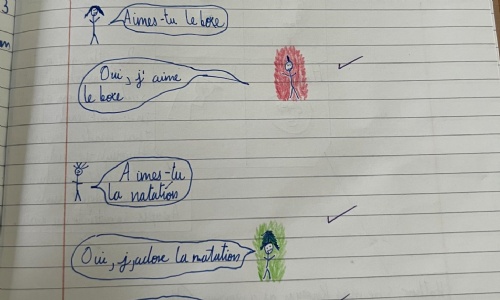 3
Aimes-tu le boxe
Oui, j'aime
le boxe
Aimes-tu
la natation
Oui, j,adore la natation